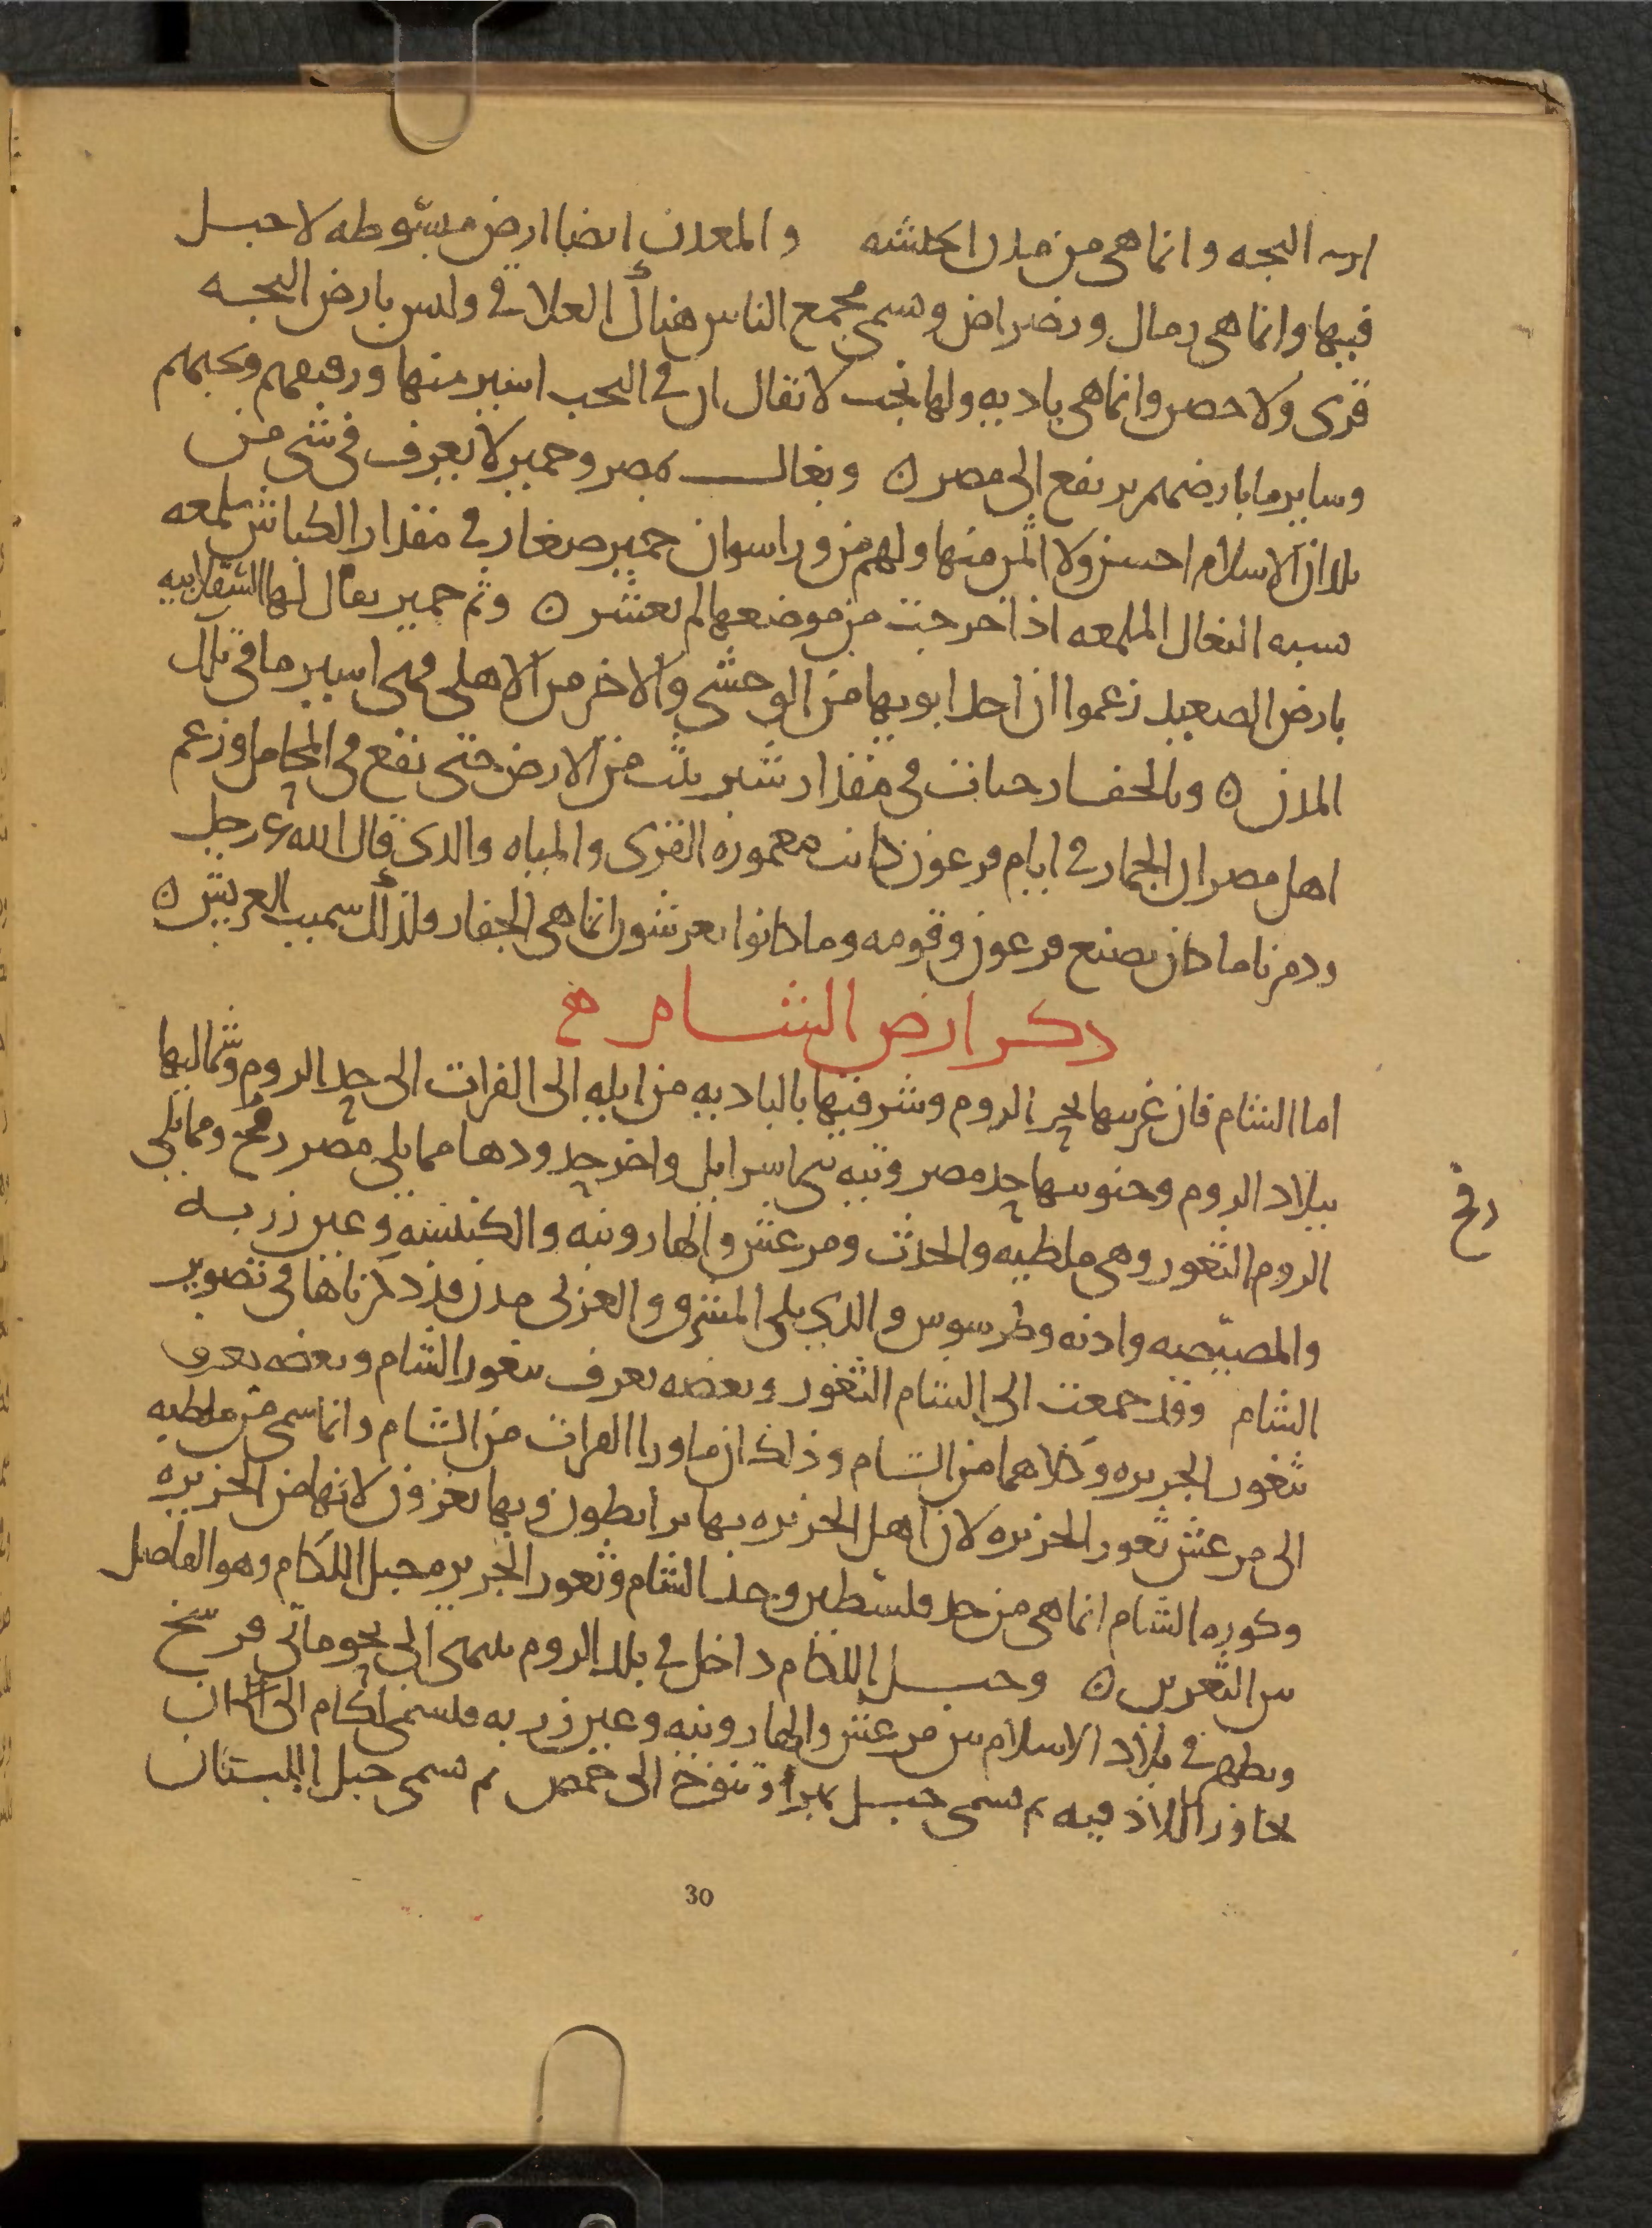 ارض البجه وانما هى من مدن الحبشه والمعدن ايضا ارض مبسوطه لا جبل
فيها وانما هى رمال ورضراض وسمى مجمع الناس هنالك العلاقى وليس بارض البجه
قرى ولا خصب وانما هى باديه ولها نجب لا يقال ان فى النجب اسير منها ورقيقهم ونجبهم
وساير ما بارضهم يرتفع الى مصر ٥ وبغال مصر وحمير لا يعرف فى شى من
بلدان الاسلام احسن ولا اثمن منها ولهم من ورا اسوان حمير صغار فى مقدار الكباش ملمعه
شبه البغال الملمعه اذا خرجت من موضعها لم تعش ٥ وثم حمير يقال لها السقلابيه
بارض الصعيد زعموا ان احد ابويها من الوحشى والاخر من الاهلى فهى اسير ما فى تلك
المدن ٥ وبالجفار حيات فى مقدار شبر تثب من الارض حتى تقع فى المحامل وزعم
اهل مصر ان الجفار فى ايام فرعون كانت معموره القرى والمياه والذى قال الله عز وجل
ودمرنا ما كان يصنع فرعون وقومه وما كانوا يعرشون انما هى الجفار ولذلك سميت العريش ٥
ذكر ارض الشام
اما الشام فان غربيها بحر الروم وشرقيها بالباديه من ايله الى الفرات الى حد الروم وشماليها
ببلاد الروم وجنوبيها حد مصر وتيه بنى اسرايل واخر حدودها مما يلى مصر رفح ومما يلى
رفح
الروم الثغور وهى ملطيه والحدث ومرعش والهارونيه والكنيسه وعين زربه
والمصيصه واذنه وطرسوس والذى يلى المشرق والغربى مدن قد ذكرناها فى تصوير
الشام وقد جمعت الى الشام الثغور وبعضه يعرف بثغور الشام وبعضه يعرف
بثغور الجزيره وكلاهما من الشام وذلك ان ما ورا الفرات من الشام وانما سمى من ملطيه
الى مرعش ثغور الجزيره لان اهل الجزيره بها يرابطون وبها يغزون لا انها من الجزيره
وكوره الشام انما هى من حد فلسطين وحد الشام وثغور الجزيره جبل اللكام وهو الفاصل
بين الثغرين ٥ وجبل اللكام داخل فى بلد الروم ينتهى الى نحو مائتى فرسخ
ويظهر فى بلاد الاسلام بين مرعش والهارونيه وعين زربه فيسمى لكام الى ان
جاوز اللاذقيه ثم يسمى جبل بهرا وتنوخ الى حمص ثم يسمى جبل لبنان
30